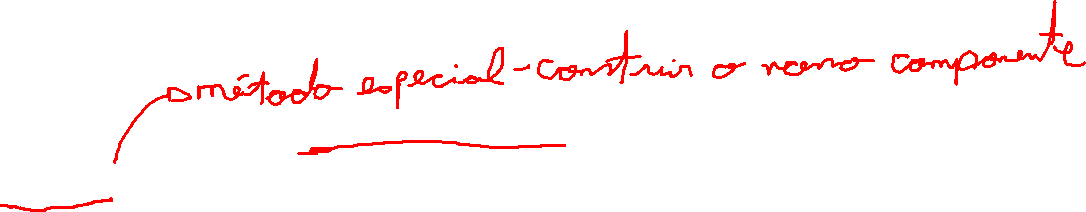 método especial - construir o nosso componente